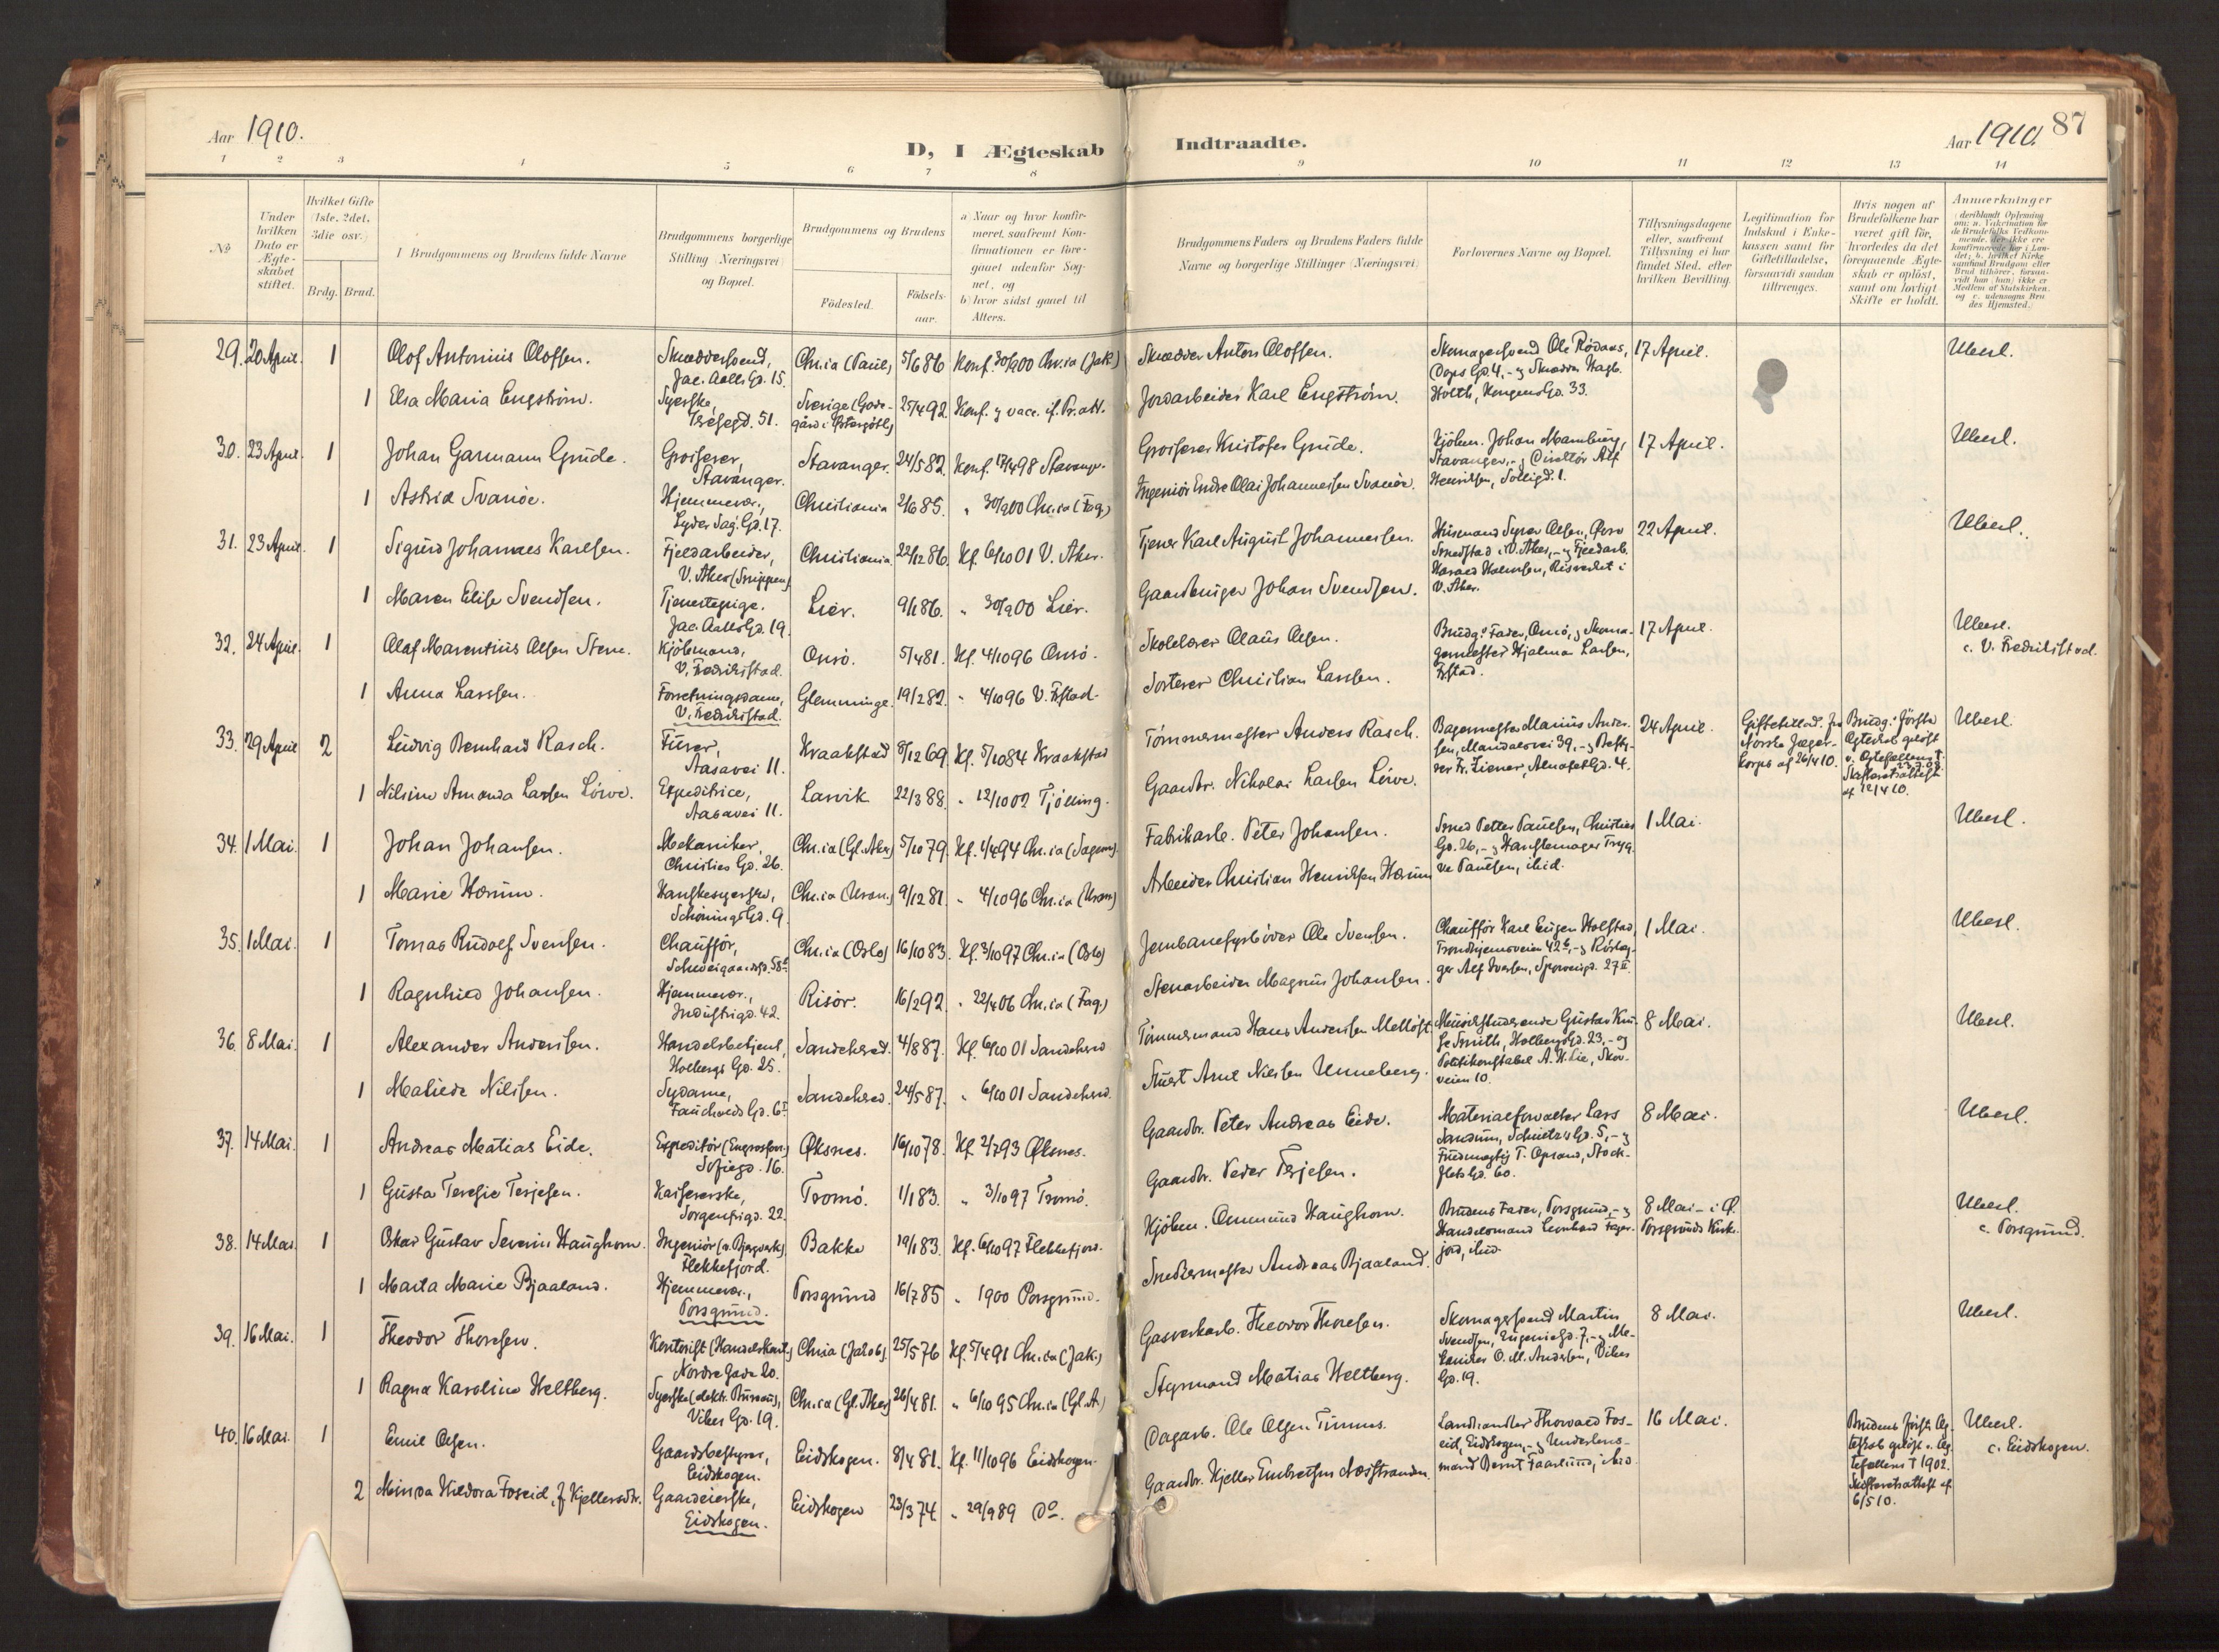 Aar 1910.
D, I Ægteskab
Indtraadte.
Aar 1910.
87
1 2 3 4 5 6 7 8 9 10 11 12 13 14
No
Under hvilken Dato er Ægteskabet stiftet.
Hvilket Gifte (1ste, 2det, 3die osv.)
Brdg. Brud.
I Brudgommens og Brudens fulde Navne
Brudgommens borgerlige Stilling (Næringsvei) og Bopæl.
Brudgommens og Brudens
Födested.
Födselsaar.
a) Naar og hvor konfirmeret, saafremt Konfirmationen er foregaaet udenfor Sognet, og
b) hvor sidst gaaet til Alters.
Brudgommens Faders og Brudens Faders fulde Navne og borgerlige Stillinger (Næringsvei)
Forlovernes Navne og Bopæl.
Tillysningsdagene eller, saafremt Tillysning ei har fundet Sted, efter hvilken Bevilling.
Legitimation for Indskud i Enkekassen samt for Giftetilladelse, forsaavidt saadan tiltrænges.
Hvis nogen af Brudefolkene har været gift för, hvorledes da det foregaaende Ægteskab er oplöst, samt om lovligt Skifte er holdt.
Anmærkninger
29. 20 April. 1 Olof Antonius Oloffen. Skræddersvend, Jac. Aalls Gd. 15. Chr.ia (Paul) 5/6 86 Konf. 30/9 00 Chr.ia (Jak.) Skrædder Anton Oloffen. Skomagersvend Ole Rödaas, Dops Gd. 4, - og Skrædder Hagb. Holth, Kongens Gd. 33. 17 April. Uberl.
1 Elsa Maria Engström. Syerske, Thereses gd. 51. Sverige (Godegård i Östergötl.) 25/4 92. Konf. og vacc. if. Pr.att. Jordarbeider Karl Engström.
30. 23 April. 1 Johan Garmann Grude. Grosserer, Stavanger. Stavanger. 24/5 82. Konf. 17/4 98 Stavanger. Grosserer Kristofer Grude. Kjöbm. Johan Mamburg, Stavanger, - og Direktör Alf Henriksen, Solligd. 1. 17 April. Uberl.
1 Astrid Svanöe. Hjemmevær., Lyder Sag. Gd. 17. Christiania 2/6 85. " 30/9 00 Chr.ia (Fag.) Ingeniör Endre Olai Johannessen Svanöe.
31. 23 April. 1 Sigurd Johannes Karlsen. Fjeldarbeider, V. Aker Christiania. 22/12 86. Kf. 6/10 01 V. Aker. Tjener Karl August Johannessen. Husmand Syver Olsen, Persv Smedstad i V. Aker, - og Fjeldarb. Harald Halvorsen, i V. Aker. 22 April. Uberl.
1 Maren Elise Svendsen. Tjenestepige. Jac. Aalls Gd. 19. Lier. 9/1 86. " 30/9 00 Lier. Gaardbruger Johan Svendsen.
32. 24 April. 1 Olaf Marentius Olsen Stene. Kjöbmand, V. Fredrikstad. Onsö. 5/4 81. Kf. 4/10 96 Onsö. Skolelærer Olaus Olsen. Brudg.s Fader, Onsö, og Skomagermester Hjalmar Larsen, Fstad. 17 April. Uberl. c. V. Fredrikstad.
1 Anna Larssen. Forretningsdame, V. Fredrikstad. Glemminge. 19/2 82. " 4/10 96 V. Fstad. Sorterer Christian Larssen.
33. 29 April 2 Ludvig Bernhard Rasch. Furer, Aasavei 11. Kraakstad 8/12 69. Kf. 5/10 84 Kraakstad Tömmermester Anders Rasch. Bagermester Marius Andersen, Mandalsvei 39, - og Bestyrer Fr. Ziener, Almagt Gd. 4. 24 April. Giftetillad. fra Norske Jægerkorps af 26/4 10. Brudg.s förste Ægteskab oplöst v. Ægtefællens † Skifteretsattest af 12/4 10. Uberl.
1 Nilsine Amanda Larsen Löwe. Expeditrice, Aasavei 11. Larvik 22/3 88. " 12/10 02 Tjölling. Gaardbr. Nikolai Larsen Löwe.
34. 1 Mai. 1 Johan Johansen. Mekaniker, Christies Gd. 26. Chr.ia (Gl. Aker) 5/10 79. Kf. 1/4 94 Chr.ia (Sagene). Fabrikarb. Peter Johansen. Smed Petter Paulsen, Christies Gd. 26, - og Hanskemager Trygve Paulsen, ibid. 1 Mai. Uberl.
1 Marie Hörum. Hanskesyerske, Schönings Gd. 9. Chr.ia (Uran.) 9/12 81. " 4/10 96 Chr.ia (Uran.) Arbeider Christian Henriksen Hörum
35. 1 Mai. 1 Tomas Rudolf Svensen. Chaufför, Schweigaardsgd. 58. Chr.ia (Oslo) 16/10 83. Kf. 3/10 97 Chr.ia (Oslo) Jernbanefyrböder Ole Svensen. Chaufför Karl Eugen Holstad, Trondhjemsveien 42, - og Rörlægger Alf Iversen, Sporveisgd. 27 II. 1 Mai. Uberl.
1 Ragnhild Johansen. Hjemmevær., Industrigd. 42. Risör. 16/2 92. " 22/4 06 Chr.ia (Fag.) Stenarbeider Magnus Johansen.
36. 8 Mai. 1 Alexander Anderssen. Handelsbetjent, Holbergs Gd. 25. Sandeherred. 4/8 87. Kf. 6/10 01 Sandeherred Tömmermand Hans Anderssen Melløst. Musikstuderende Gustav Smith, Holbergs Gd. 23, - og Politikonstabel A. H. Lie, Skovveien 10. 8 Mai. Uberl.
1 Matilde Nilssen. Sydame, Fauchalds Gd. 6 I. Sandehered. 24/5 87. " 6/10 01 Sandehered. Stuert Arnt Nilssen Unneberg.
37. 14 Mai. 1 Andreas Matias Eide. Expeditör (Engrosforr.) Sofiegd. 16. Øksnes. 16/10 78. Kf. 2/7 93 Øksnes. Gaardbr. Peter Andreas Eide. Materialforvalter Lars Sandum, Schultz's Gd. 5, - og Fuldmægtig T. Opsand, Stockflets Gd. 60. 8 Mai. Uberl.
1 Gusta Teresie Terjesen. Kassererske, Sorgenfrigd. 22. Tromö. 1/1 83. " 3/10 97 Tromö. Gaardbr. Peder Terjesen.
38. 14 Mai 1 Oskar Gustav Severin Haughom. Ingeniör (v. Bjergverk) Flekkefjord. Bakke 19/1 83. Kf. 6/10 97 Flekkefjord. Kjöbm. Ommund Haughom. Brudens Fader, Porsgrund, - og Handelsmand Leonhard Fagerjord, ibid. 8 Mai - i Ø. Porsgrunds Kirke. Uberl. c. Porsgrund.
1 Marta Marie Bjaaland. Hjemmevær., Porsgrund. Porsgrund 16/7 85 " 1900 Porsgrund. Snedkermester Andreas Bjaaland.
39. 16 Mai. 1 Theodor Thoresen. Kontorist (Handelskont.) Nordre Gade 20. Chria (Jakob). 25/5 76 Kf. 5/4 91 Chr.ia (Jak.) Gasverkarb. Theodor Thoresen. Skomagersvend Martin Svendsen, Eugenies Gd. 7, - og Mekaniker O. M. Andersen, Vibes Gd. 19. 8 Mai. Uberl.
1 Ragna Karoline Heltberg. Syerske (elektr. Bureau), Vibes Gd. 19. Chr.ia (Gl. Aker) 26/4 81. " 6/10 95 Chr.ia (Gl. A.) Styrmand Matias Heltberg.
40. 16 Mai. 1 Emil Olsen. Gaardsbestyrer, Eidskogen. Eidskogen. 8/4 81. Kf. 11/10 96 Eidskogen. Dagarb. Ole Olsen Timms. Landhandler Thorvald Foseid, Eidskogen, - og Underlensmand Bernt Taarlund, ibid 16 Mai. Brudens förste Ægteskab oplöst v. Ægtefællens † 1902. Skifteretsattest af 6/5 10. Uberl. c. Eidskogen.
2 Minda Hildora Foseid, f. Kjellersdtr. Gaardeierske, Eidskogen. Eidskogen 23/3 74 " 29/9 89 Do. Gaardbr. Kjeller Embretsen Næsstranden.